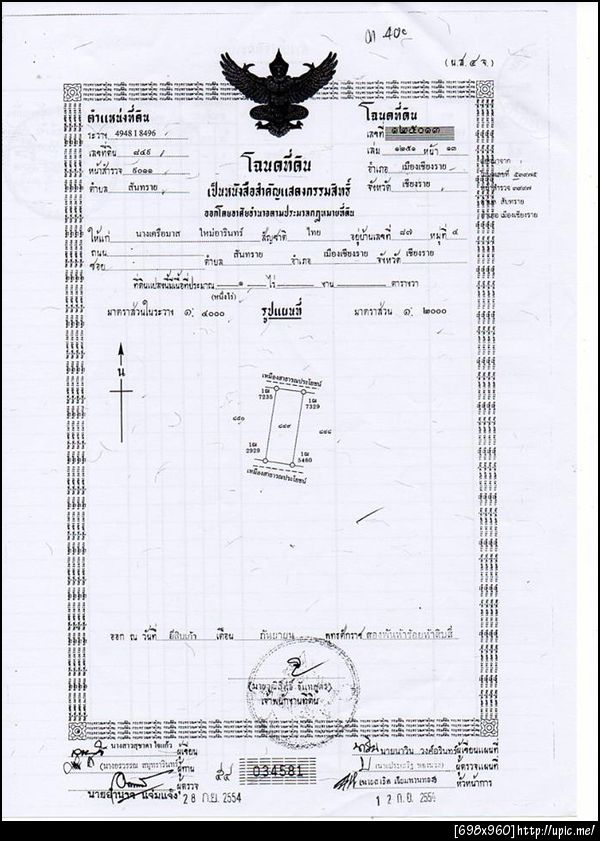 (น.ส.๔ จ.)
ตำแหน่งที่ดิน
ระวาง 4948 I 8496
เลขที่ดิน ๘๔๙
หน้าสำรวจ ๙๐๑๑
ตำบล สันทราย
โฉนดที่ดิน
เลขที่ ๑๒๕๐๑๓
เล่ม ๑๒๕๑ หน้า ๑๓
อำเภอ เมืองเชียงราย
จังหวัด เชียงราย
โฉนดที่ดิน
เป็นหนังสือสำคัญแสดงกรรมสิทธิ์
ออกโดยอาศัยอำนาจตามประมวลกฎหมายที่ดิน
ให้แก่ นางเครือมาส ใหม่อารินทร์ สัญชาติ ไทย อยู่บ้านเลขที่ ๘๗ หมู่ที่ ๔
ถนน
ซอย ตำบล สันทราย อำเภอ เมืองเชียงราย จังหวัด เชียงราย
ที่ดินแปลงนี้มีเนื้อที่ประมาณ ๑ ไร่ งาน ตารางวา
(หนึ่งไร่)
มาตราส่วนในระวาง ๑: ๔๐๐๐ รูปแผนที่ มาตราส่วน ๑: ๒๐๐๐
น
เหมืองสาธารณประโยชน์
7235
7329
๘๔๙
2929
5460
เหมืองสาธารณประโยชน์
ออก ณ วันที่ ยี่สิบเก้า เดือน กันยายน พุทธศักราช สองพันห้าร้อยห้าสิบสี่
เจ้าพนักงานที่ดิน
นางสาวสุชาดา ใจแก้ว ผู้เขียน
ผู้ทาน
ผู้ตรวจ
28 ก.ย. 2554
034581
นายนาวิน วงศ์อรินทร์ ผู้เขียนแผนที่
ผู้ตรวจแผนที่
หัวหน้าการ
[698x960]http://upic.me/